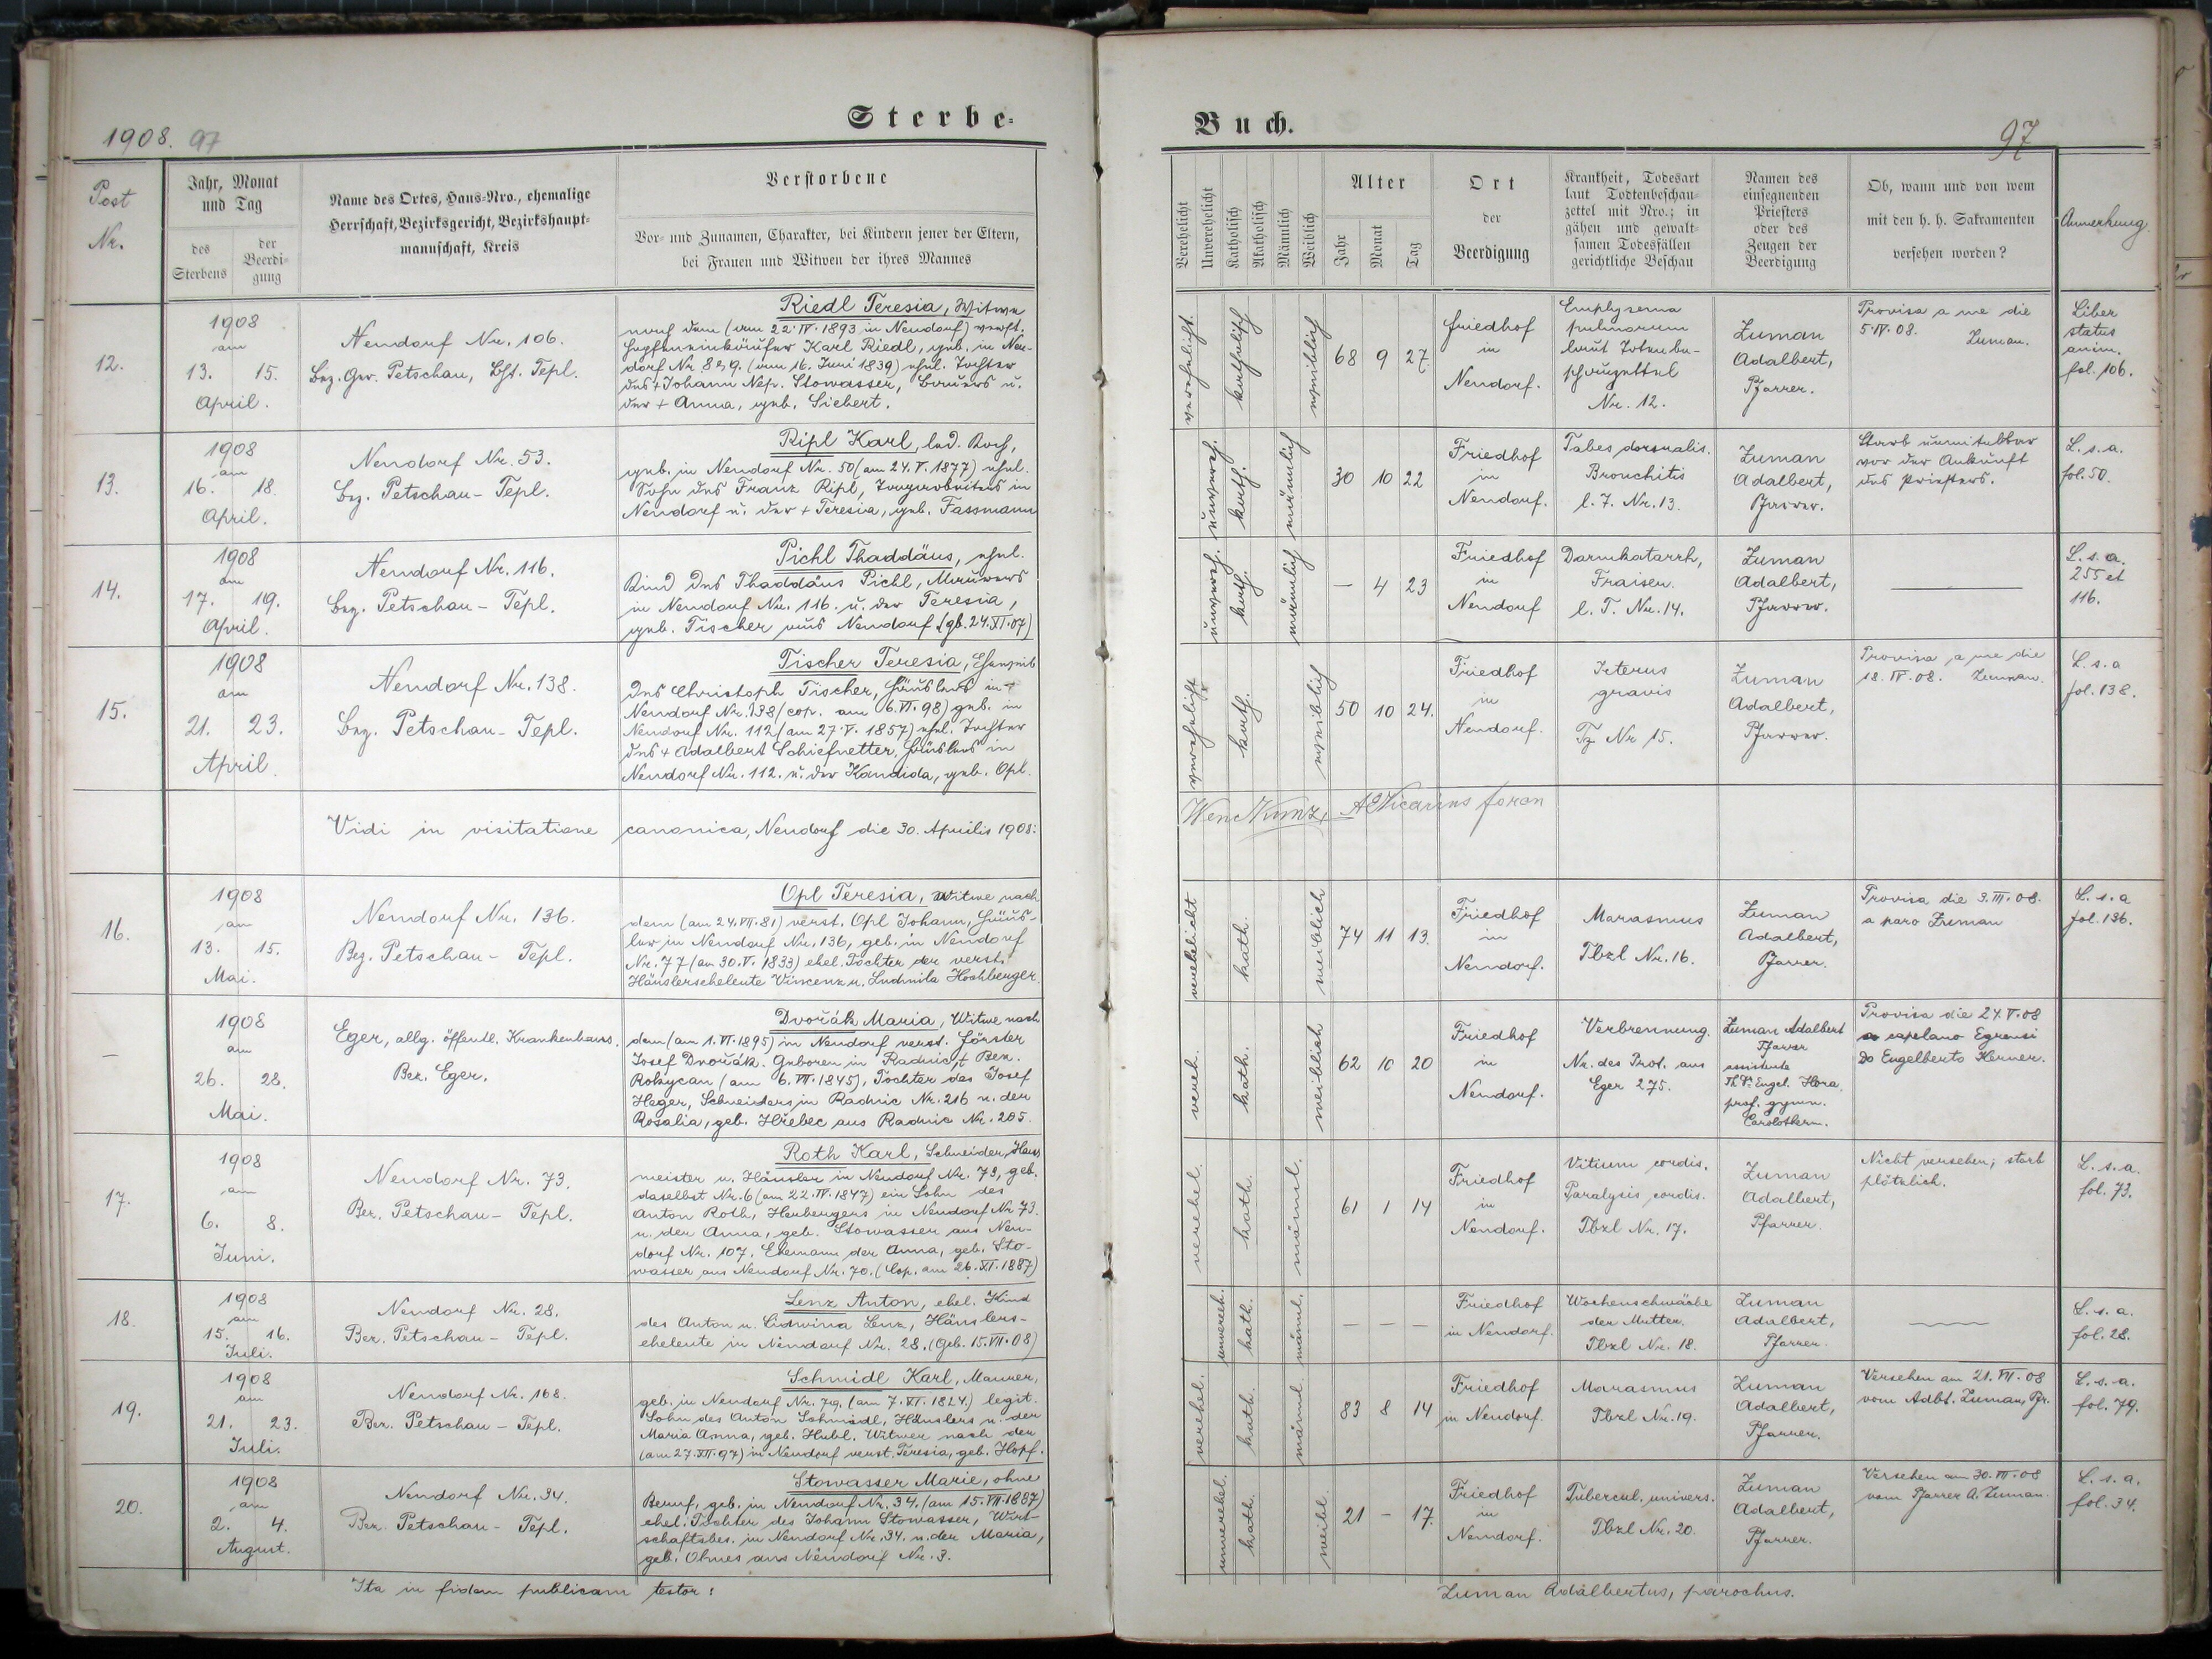 Sterbe-
Buch.
1908. 97
97
Post Nr.
Jahr, Monat und Tag
des Sterbens
der Beerdi-gung
Name des Ortes, Haus-Nro., ehemalige
Herrschaft, Bezirksgericht, Bezirkshaupt-
mannschaft, Kreis
Verstorbene
Vor- und Zunamen, Charakter, bei Kindern jener der Eltern,
bei Frauen und Witwen der ihres Mannes
Verehelicht
Unverehelicht
Katholisch
Akatholisch
Männlich
Weiblich
Alter
Jahr
Monat
Tag
Ort
der
Beerdigung
Krankheit, Todesart
laut Todtenbeschau-
zettel mit Nro.; in
gähen und gewalt-
samen Todesfällen
gerichtliche Beschau
Namen des
einsegnenden
Priesters
oder des
Zeugen der
Beerdigung
Ob, wann und von wem
mit den h. h. Sakramenten
versehen worden?
Anmerkung.
12.
1908
am
13. 15.
April.
Neudorf Nr. 106.
Bez. Ger. Petschau, Bzh. Tepl.
Riedl Teresia, Witwe
nach dem (am 22.IV.1893 in Neudorf) verst.
Karl Riedl, geb. in Neu-
dorf Nr. 89. (am 16. Juni 1839) ehel. Tochter
des + Johann Nep. Stowasser, u.
der + Anna, geb. Siebert.
verehelicht.
katholisch
weiblich
68 9 27.
Friedhof
in
Neudorf.
Emphysema
pulmonum
laut Totenbe-
schauzettel
Nr. 12.
Zuman
Adalbert,
Pfarrer.
Provisa a me die
5.IV.08. Zuman.
Liber
status
anim.
fol. 106.
13.
1908
am
16. 18.
April.
Neudorf Nr. 53.
Bez. Petschau - Tepl.
Ripl Karl, led. Koch,
geb. in Neudorf Nr. 50 (am 24.V.1877) ehel.
Sohn des Franz Ripl, Zeugarbeiters in
Neudorf u. der + Teresia, geb. Fassmann
unvereh.
kath.
männlich
30 10 22
Friedhof
in
Neudorf.
Tabes dorsualis.
Bronchitis
l. T. Nr. 13.
Zuman
Adalbert,
Pfarrer.
Starb unmittelbar
vor der Ankunft
des Priesters.
L. s. a.
fol. 50.
14.
1908
am
17. 19.
April.
Neudorf Nr. 116.
Bez. Petschau - Tepl.
Pichl Thaddäus, ehel.
Kind des Thaddäus Pichl, Maurers
in Neudorf Nr. 116. u. der Teresia,
geb. Tischer aus Neudorf (gb. 24.XI.07)
unvereh.
kath.
männlich
— 4 23
Friedhof
in
Neudorf
Darmkatarrh,
Fraisen.
l. T. Nr. 14.
Zuman
Adalbert,
Pfarrer.
L. s. a.
255 et
116.
15.
1908
am
21. 23.
April.
Neudorf Nr. 138.
Bez. Petschau - Tepl.
Tischer Teresia, Eheweib
des Christoph Tischer, Häuslers in
Neudorf Nr. 138 (cop. am 6.VI.98) geb. in
Neudorf Nr. 112 (am 27.V.1857) ehel. Tochter
des + Adalbert Schiefnetter, Häuslers in
Neudorf Nr. 112. u. der Kandida, geb. Opl.
verehelicht
kath.
weiblich
50 10 24.
Friedhof
in
Neudorf.
Icterus
gravis
Tz Nr 15.
Zuman
Adalbert,
Pfarrer.
Provisa a me die
18.IV.08. Zuman.
L. s. a
fol. 138.
Vidi in visitatione canonica, Neudorf die 30. Aprilis 1908:
Wenc Kunz, Vicarius foran
16.
1908
am
13. 15.
Mai.
Neudorf Nr. 136.
Bez. Petschau - Tepl.
Opl Teresia, Witwe nach
dem (am 24.VII.81) verst. Opl Johann, Häus-
ler in Neudorf Nr. 136, geb. in Neudorf
Nr. 77 (am 30.V.1833) ehel. Tochter der verst.
Häuslerseheleute Vincenz u. Ludmila Hochberger.
verehelicht
kath.
weiblich
74 11 13.
Friedhof
in
Neudorf.
Marasmus
Tbzl Nr. 16.
Zuman
Adalbert,
Pfarrer.
Provisa die 3.III.08.
a paro Zuman
L. s. a
fol. 136.
—
1908
am
26. 28.
Mai.
Eger, allg. öffentl. Krankenhaus.
Bez. Eger.
Dvořák Maria, Witwe nach
dem (am 1.VI.1895) in Neudorf verst. Förster
Josef Dvořák. Geboren in Radnic, Bez.
Rokycan (am 6.VII.1845), Tochter des Josef
Heger, Schneiders in Radnic Nr. 216 u. der
Rosalia, geb. Hřebec aus Radnic Nr. 205.
vereh.
kath.
weiblich
62 10 20
Friedhof
in
Neudorf.
Verbrennung.
Nr. des Prot. aus
Eger 275.
Zuman Adalbert
Pfarrer
assistente
Th. Dr. Engel. Hora
prof. gymn.
Carolotherm.
Provisa die 24.V.08
a capelano Egrensi
Do Engelberto Kerner.
17.
1908
am
6. 8.
Juni.
Neudorf Nr. 73.
Bez. Petschau - Tepl.
Roth Karl, Schneider, Haus
meister u. Häusler in Neudorf Nr. 73, geb.
daselbst Nr. 6 (am 22.IV.1847) ein Sohn des
Anton Roth, Herbergers in Neudorf Nr 73.
u. der Anna, geb. Stowasser aus Neu-
dorf Nr. 107. Ehemann der Anna, geb. Sto-
wasser aus Neudorf Nr. 70. (Cop. am 26.XI.1887)
verehel.
kath.
männl.
61 1 14
Friedhof
in
Neudorf.
Vitium cordis.
Paralysis cordis.
Tbzl Nr. 17.
Zuman
Adalbert,
Pfarrer.
Nicht versehen; starb
plötzlich.
L. s. a.
fol. 73.
18.
1908
am
15. 16.
Juli.
Neudorf Nr. 28.
Bez. Petschau - Tepl.
Lenz Anton, ehel. Kind
des Anton u. Lidwina Lenz, Häuslers-
eheleute in Neudorf Nr. 28. (Geb. 15.VII.08)
unvereh.
kath.
männl.
— — —
Friedhof
in Neudorf.
Wochenschwäche
der Mutter.
Tbzl Nr. 18.
Zuman
Adalbert,
Pfarrer.
L. s. a.
fol. 28.
19.
1908
am
21. 23.
Juli.
Neudorf Nr. 168.
Bez. Petschau - Tepl.
Schmidl Karl, Maurer,
geb. in Neudorf Nr. 79. (am 7.XI.1824.) legit.
Sohn des Anton Schmidl, Häuslers u. der
Maria Anna, geb. Hubl. Witwer nach der
(am 27.XII.97) in Neudorf verst. Teresia, geb. Hopf.
verehel.
kath.
männl.
83 8 14
Friedhof
in Neudorf.
Marasmus
Tbzl Nr. 19.
Zuman
Adalbert,
Pfarrer.
Versehen am 21.VII.08
vom Adbt. Zuman, Pfr.
L. s. a.
fol. 79.
20.
1908
am
2. 4.
August.
Neudorf Nr. 34.
Bez. Petschau - Tepl.
Stowasser Marie, ohne
Beruf, geb. in Neudorf Nr. 34. (am 15.VII.1887)
ehel. Tochter des Johann Stowasser, Wirt-
schaftsbes. in Neudorf Nr. 34. u. der Maria,
geb. Ohnes aus Neudorf Nr. 3.
unverehel.
kath.
weibl.
21 - 17.
Friedhof
in
Neudorf.
Tubercul. univers.
Tbzl Nr. 20.
Zuman
Adalbert,
Pfarrer.
Versehen am 30.VII.08
vom Pfarrer A. Zuman.
L. s. a.
fol. 34.
Ita in fidem publicam testor:
Zuman Adalbertus, parochus.